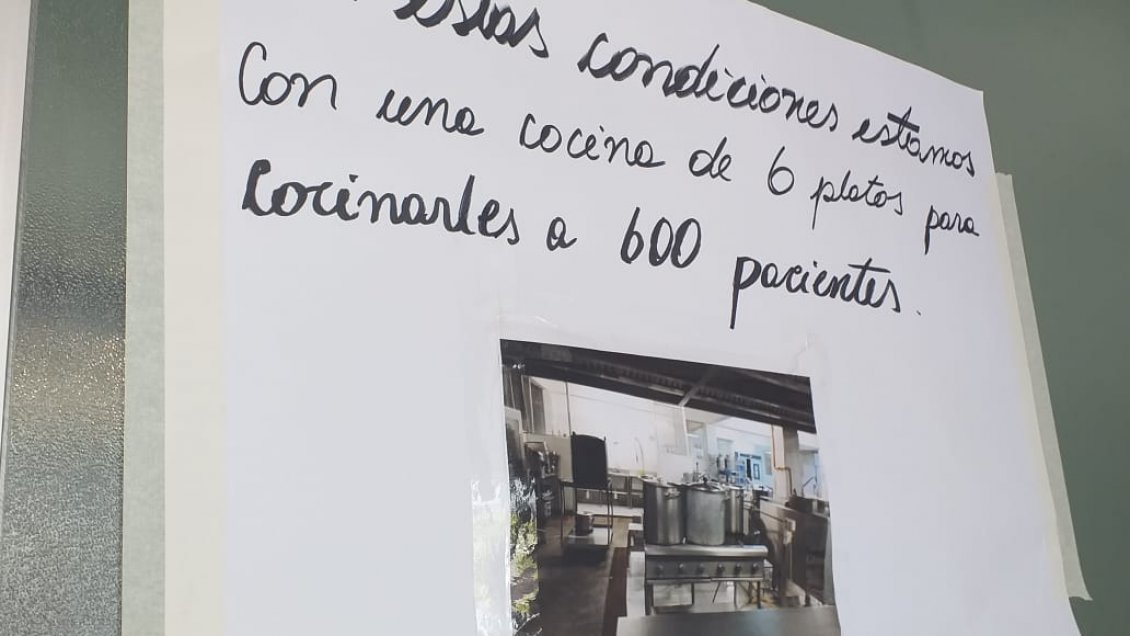 estas condiciones estamos
Con una cocina de 6 platos para
Cocinarles a 600 pacientes.